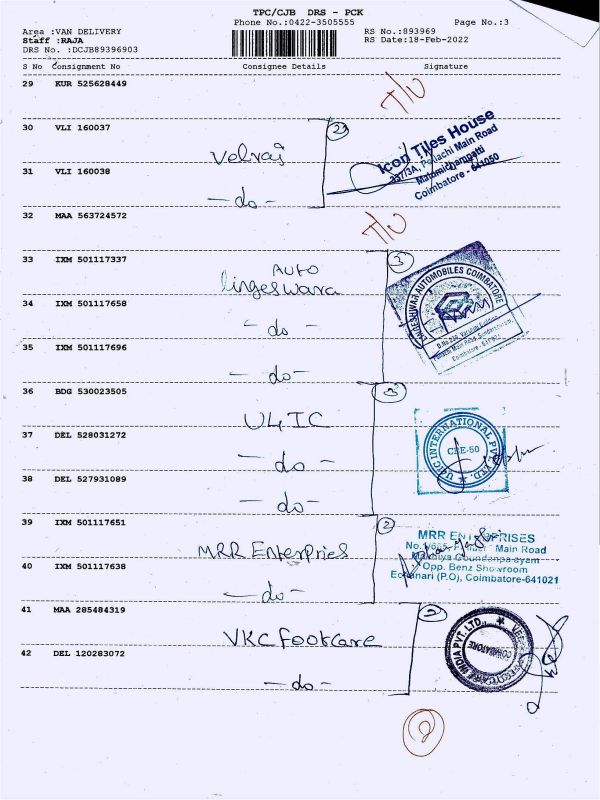 TPC/CJB DRS - PCK
Phone No.:0422-3505555 Page No.:3
Area :VAN DELIVERY RS No.:893969
Staff :RAJA RS Date:18-Feb-2022
DRS No. :DCJB89396903
S No Consignment No Consignee Details Signature
29 KUR 525628449 T/U
30 VLI 160037
Velraj 2
31 VLI 160038
- do -
Icon Tiles House
337/3A, Pollachi Main Road
Malumichampatti
Coimbatore - 641050
32 MAA 563724572 T/U
33 IXM 501117337 Auto
lingeswara 3
34 IXM 501117658
- do -
35 IXM 501117696
- do -
AUTOMOBILES COIMBATORE
36 BDG 530023505
U4IC 3
37 DEL 528031272
- do -
38 DEL 527931089
- do -
U4IC INTERNATIONAL PVT. LTD.
CBE-50
39 IXM 501117651
MRR Enterpries 2
40 IXM 501117638
- do -
MRR ENTERPRISES
Main Road
Opp. Benz Showroom
(P.O), Coimbatore-641021
41 MAA 285484319
VKC footcare 2
42 DEL 120283072
- do -
INDIA PVT. LTD.
COIMBATORE